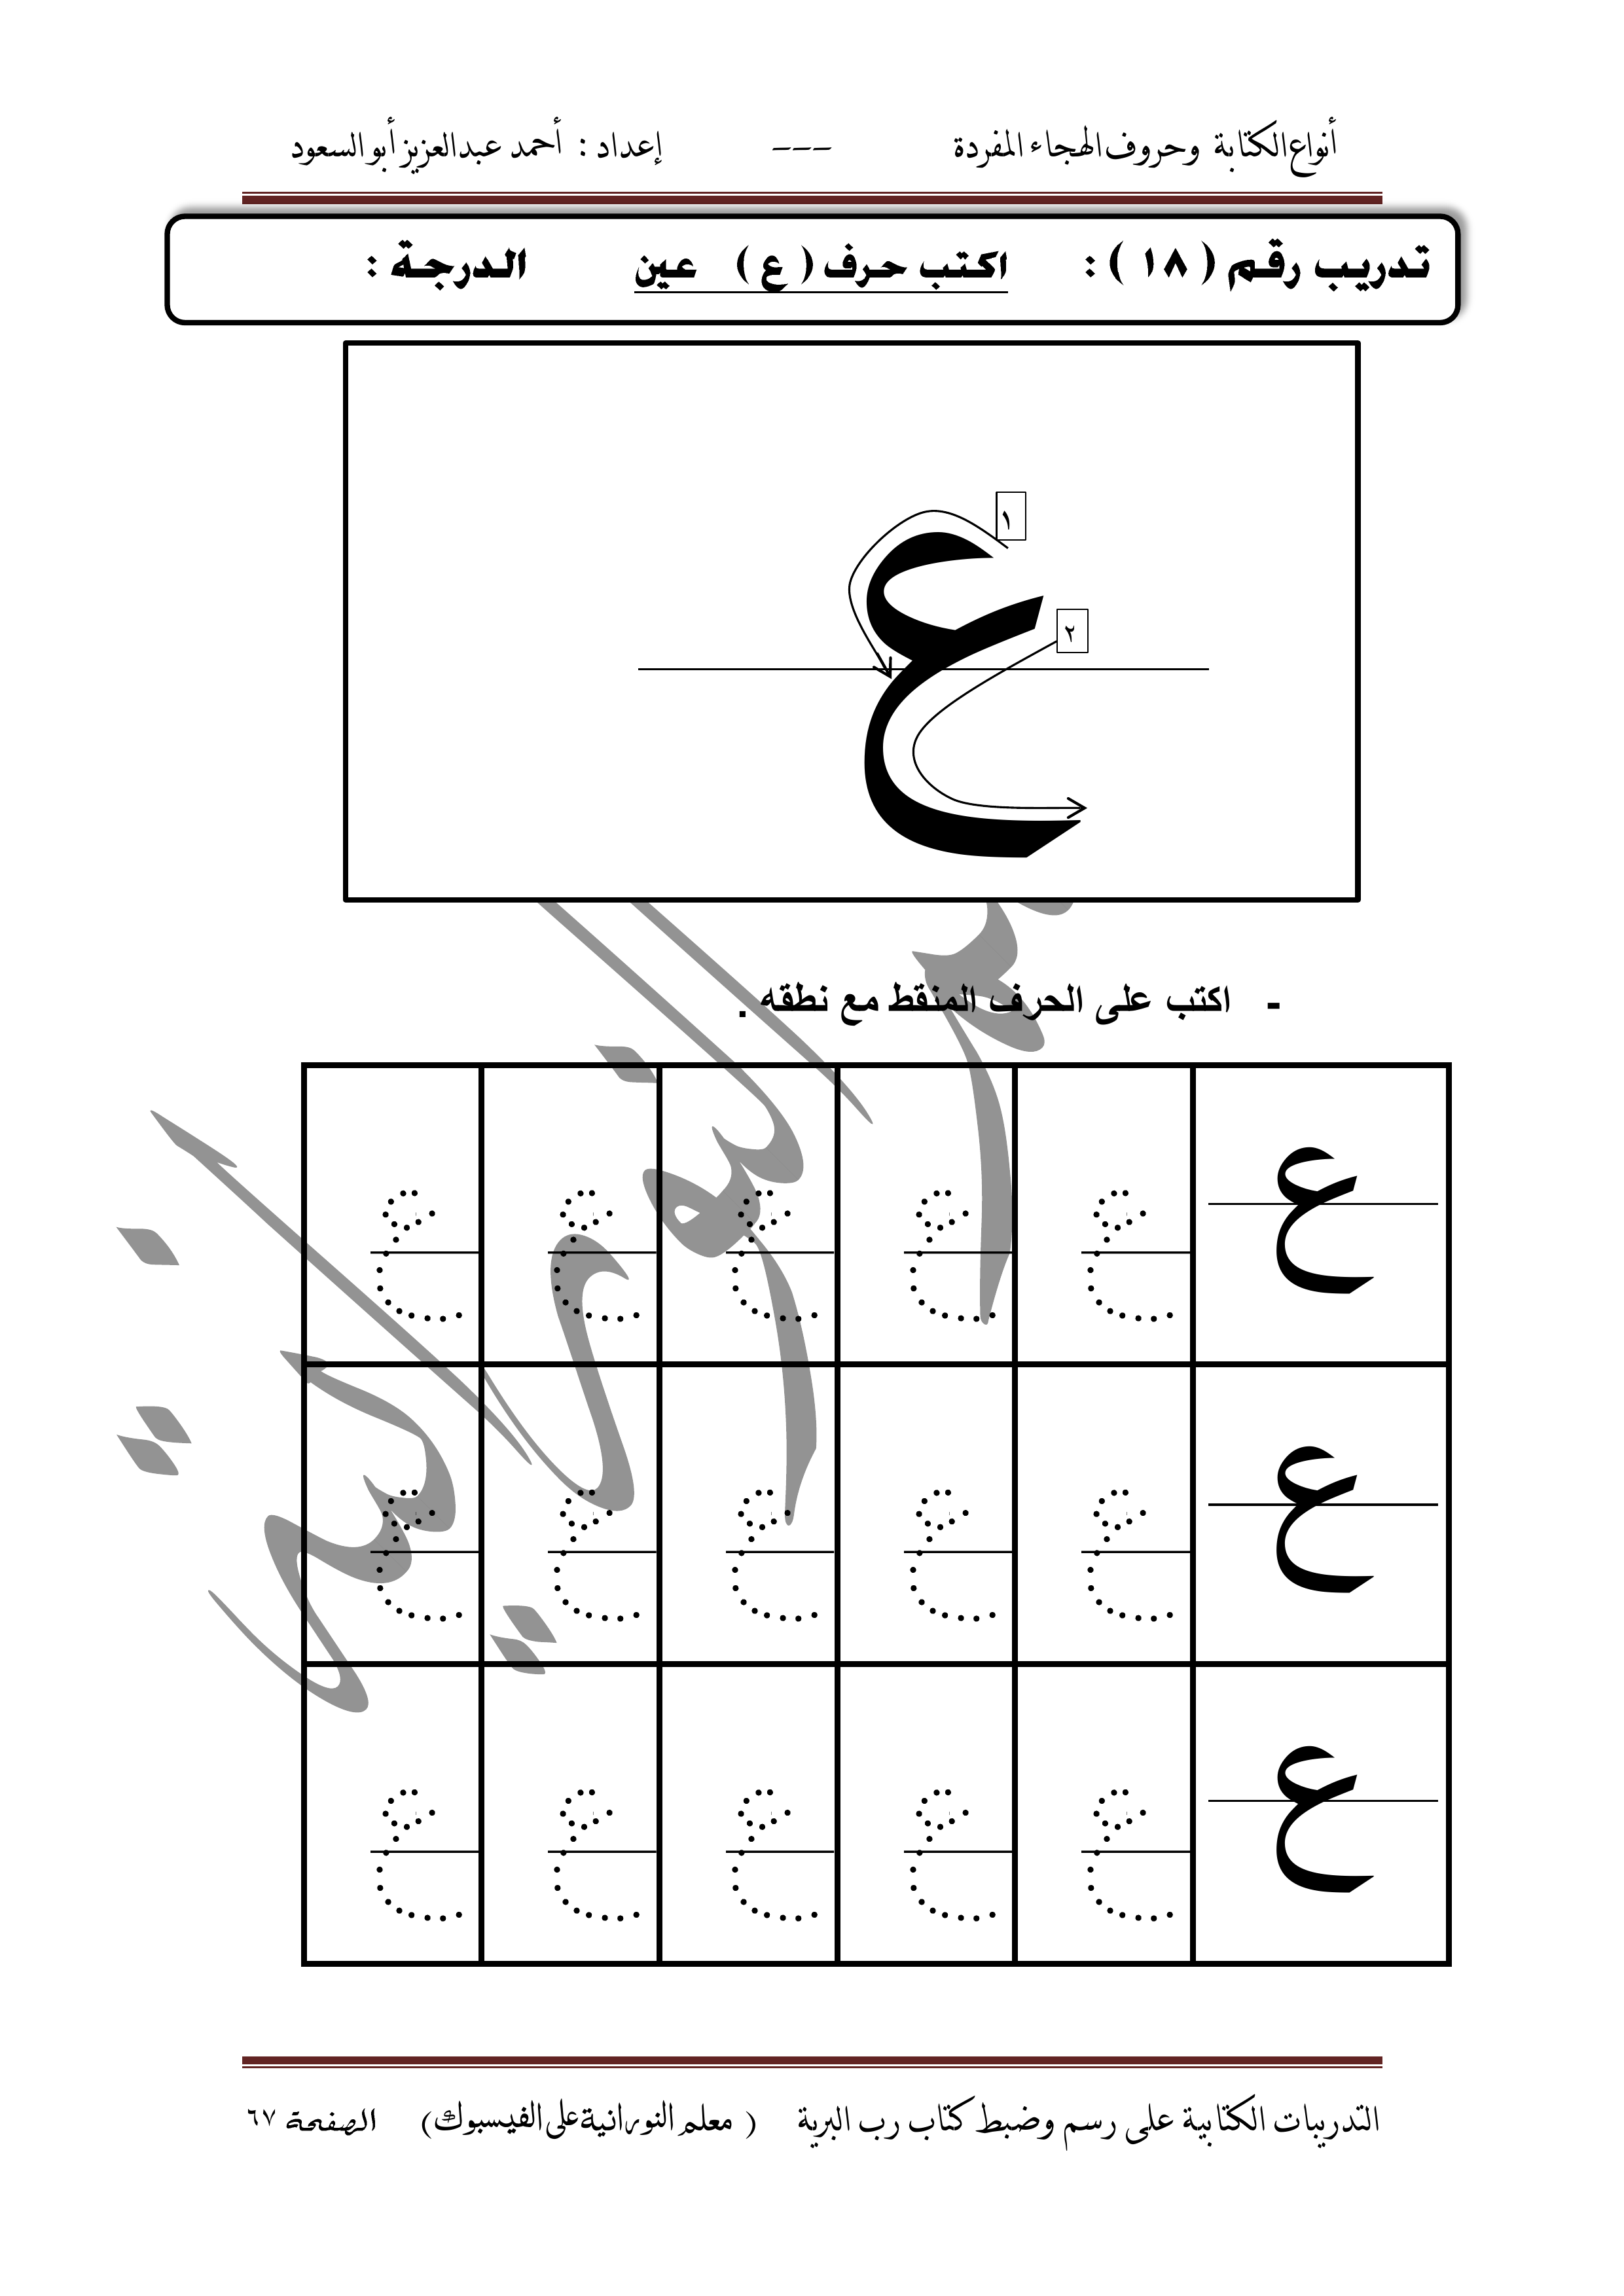 أنواع الكتابة وحروف الهجاء المفردة --- إعداد : أحمد عبدالعزيز أبو السعود
تدريب رقم ( ١٨ ) : اكتب حرف ( ع ) عين الدرجة :
١
ع
٢
- اكتب على الحرف المنقط مع نطقه .
ع ع ع ع ع ع
ع ع ع ع ع ع
ع ع ع ع ع ع
التدريبات الكتابية على رسم وضبط كتاب رب البرية ( معلم النورانية على الفيسبوك) الصفحة ٦٧